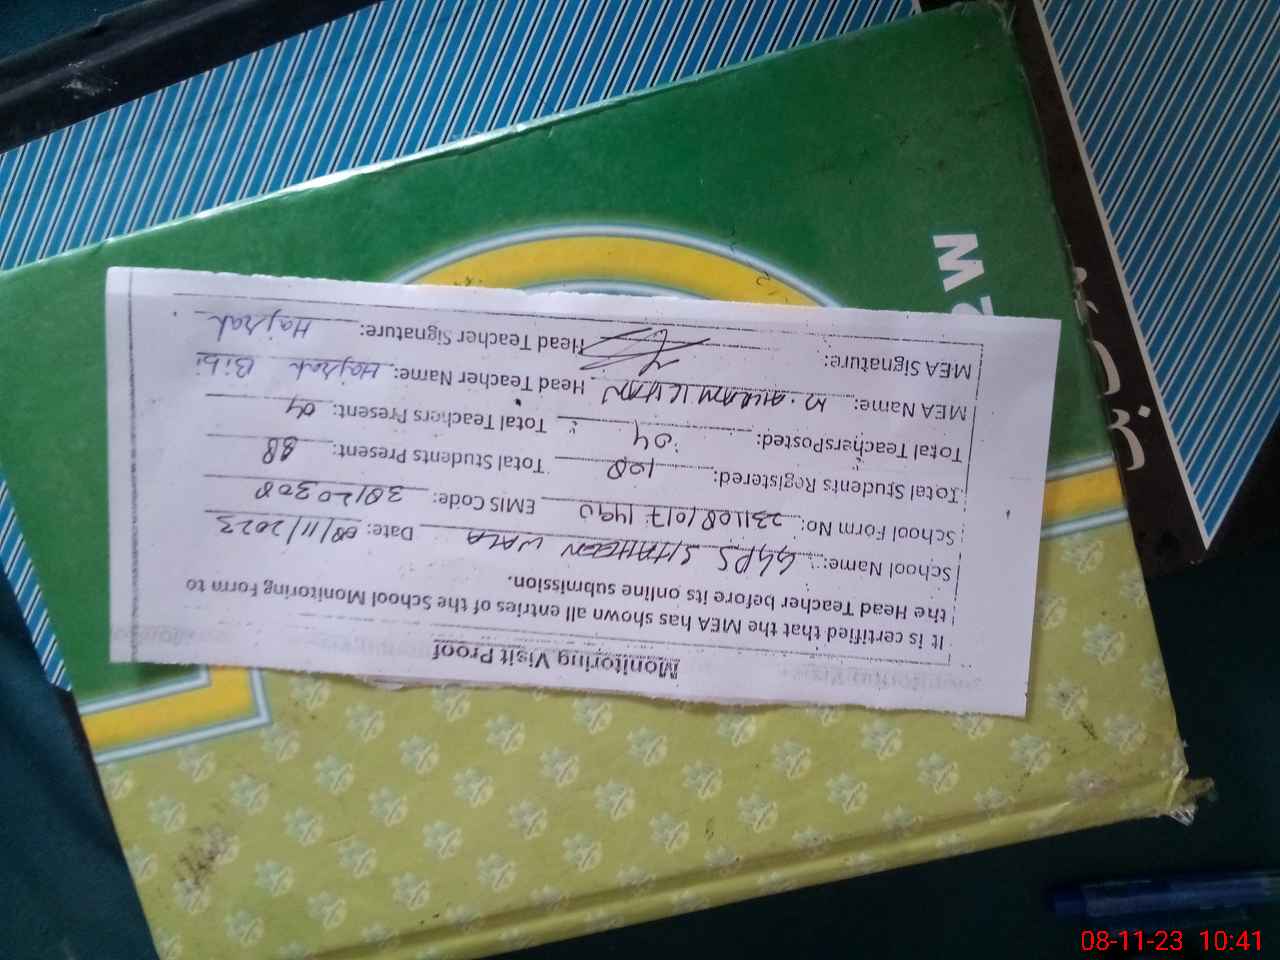 Monitoring Visit Proof
It is certified that the MEA has shown all entries of the School Monitoring Form to
the Head Teacher before its online submission.
School Name: GGPS WALA Date: 08/11/2023
School Form No: EMIS Code: 38120308
Total Students Registered: 108 Total Students Present: 88
Total TeachersPosted: 04 Total Teachers Present: 04
MEA Name: KHAN Head Teacher Name: Hajrah Bibi
MEA Signature: Head Teacher Signature: Hajrah
08-11-23 10:41